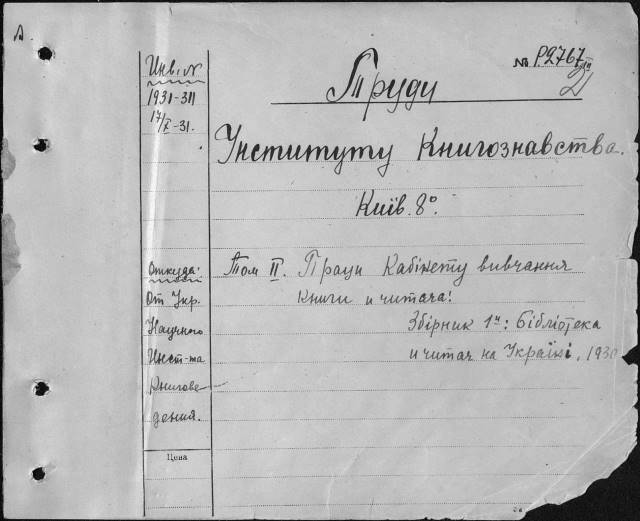 А
Инв. №
1931-311
17/X-31.
№ Р2767
21
Труди
Інституту Книгознавства.
Київ. 8°.
Откуда:
От Укр.
Научного
Инст-та
Книгове
дения.
Цена
Том II. Праци Кабінету вивчання
книги и читача!
Збірник 1й: Бібліотека
и читач на Україні, 1930